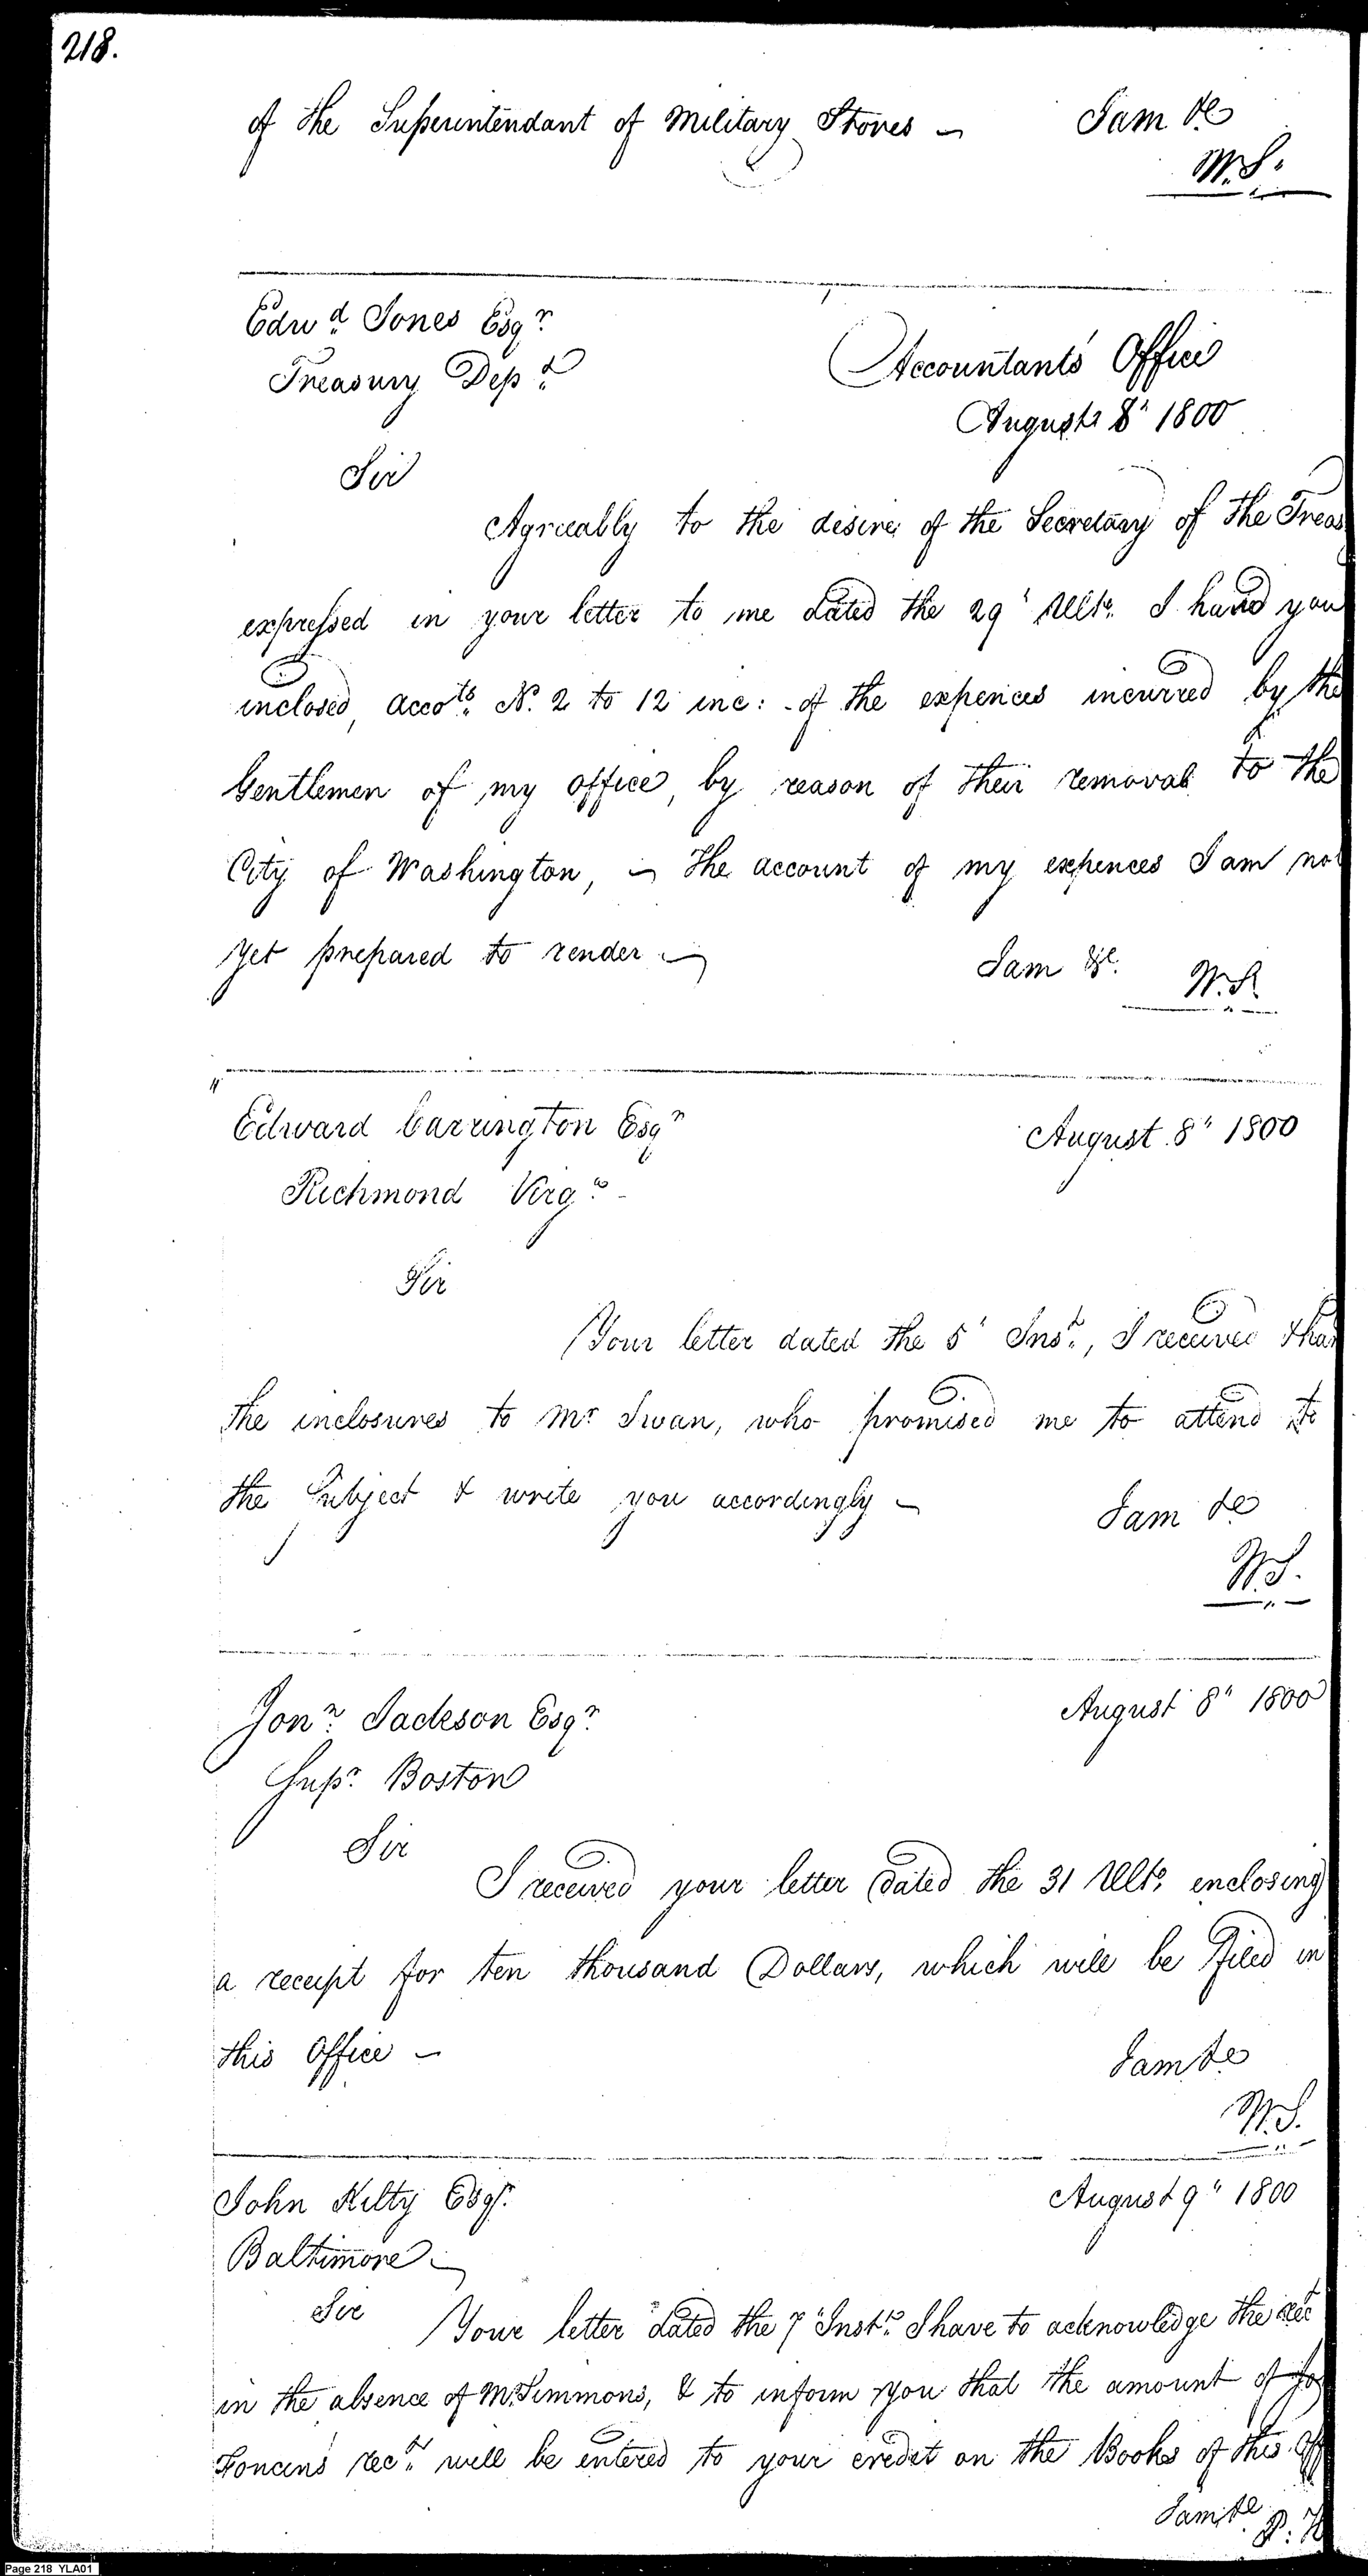 218.
of the Superintendant of Military Stores — I am &c
W.S.
Edwd. Jones Esqr.
Treasury Dept.
Accountants Office
August 8" 1800
Sir
Agreeably to the desire of the Secretary of the Treas
expressed in your letter to me dated the 29' Ulto. I hand you
inclosed, accots. No. 2 to 12 inc: of the expences incurred by the
Gentlemen of my office, by reason of their removal to the
City of Washington, — The account of my expences I am not
yet prepared to render — I am &c. W.S.
Edward Carrington Esqr August 8" 1800
Richmond Virga.
Sir
Your letter dated the 5' Inst., I received
the inclosures to Mr Swan, who promised me to attend to
the Subject & write you accordingly — I am &c
W.S.
Jonn. Jackson Esqr. August 8" 1800
Supr. Boston
Sir
I received your letter dated the 31 Ulto. enclosing
a receipt for ten thousand Dollars, which will be filed in
this Office — I am &c
W.S.
John Kilty Esqr. August 9" 1800
Baltimore —
Sir Your letter dated the 7" Inst. I have to acknowledge the rect
in the absence of Mr. Simmons, & to inform you that the amount of
rect. will be entered to your credit on the Books of this Off
I am &c.
Page 218 YLA01